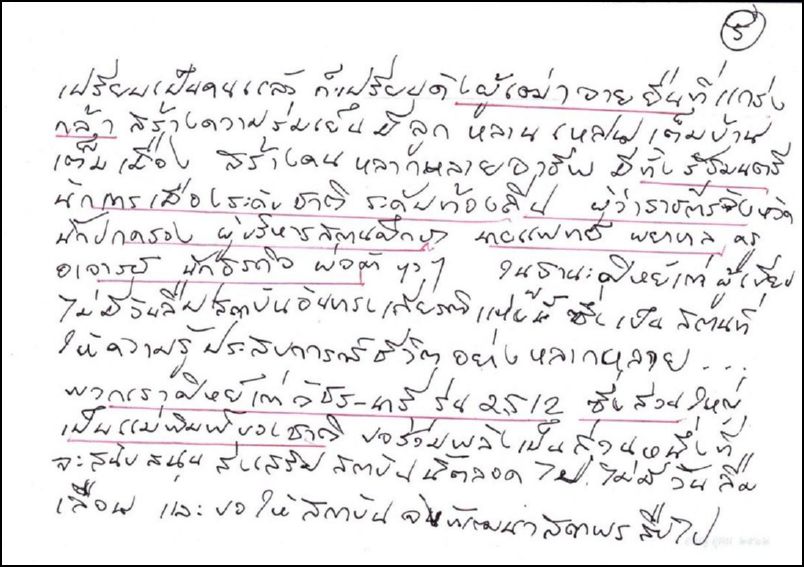 ๕
เปรียบเป็นคนแล้ว ก็เปรียบดังผู้เฒ่าอายุยืนที่แกร่ง
กล้า สร้างความร่มเย็น มีลูก หลาน เหลน เต็มบ้าน
เต็มเมือง สร้างคนหลากหลายอาชีพ มีทั้งรัฐมนตรี
นักการเมืองระดับชาติ ระดับท้องถิ่น ผู้ว่าราชการจังหวัด
นักปกครอง ผู้บริหารสถานศึกษา นายแพทย์ พยาบาล ครู
อาจารย์ นักธุรกิจ พ่อค้า ฯลฯ ในฐานะศิษย์เก่า ผู้เขียน
ไม่มีวันลืมสถาบันอันทรงเกียรติแห่งนี้ ซึ่งเป็นสถานที่
ให้ความรู้ ประสบการณ์ชีวิตอย่างหลากหลาย...
พวกเราศิษย์เก่า วัชร-นารี รุ่น 2512 ซึ่งส่วนใหญ่
เป็นแม่พิมพ์ของชาติ ขอร่วมพลังเป็นส่วนหนึ่งที่
จะสนับสนุน ส่งเสริม สถาบันนี้ตลอดไป ไม่มีวันลืม
เลือน และขอให้สถาบัน สถาพรสืบไป